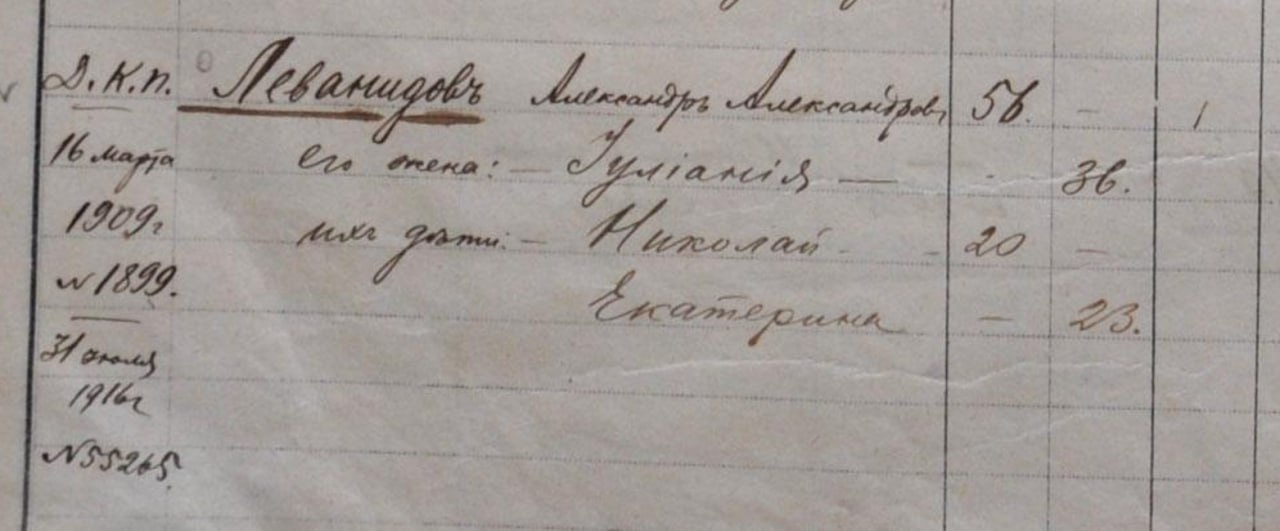 Д.К.П. Леванидовъ Александръ Александров. 56. — 1
16 марта его жена: — Іуліанія — 36.
1909г ихъ дѣти: — Николай 20 —
№1899. Екатерина — 23.
31 июля
1916г
№55265.